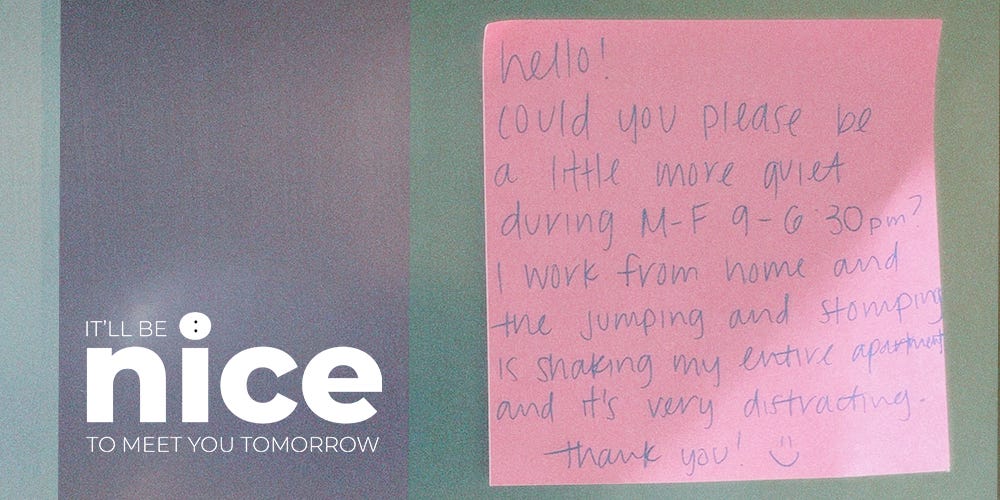 IT'LL BE
nice
TO MEET YOU TOMORROW
hello!
could you please be
a little more quiet
during M-F 9-6:30pm?
I work from home and
the jumping and stomping
is shaking my entire apartment
and it's very distracting.
thank you! :)